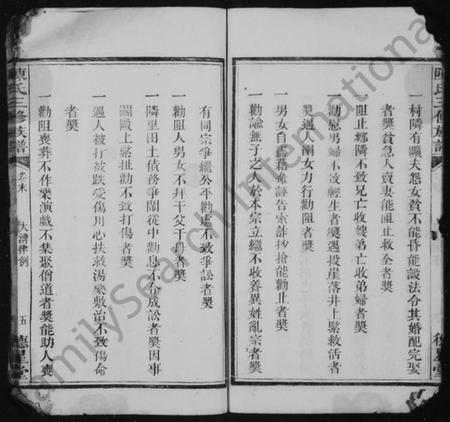 陳氏三修族譜
德星堂
一村隣有曠夫怨女貧不能昏能設法令其婚配完娶
者獎貧急人賣妻能阻止救全者獎
一阻止鄉隣不致兄亡收嫂弟亡收弟婦者獎
一勸慰男婦不致輕生者獎遇投崖落井上緊救活者
獎溺女力行勸阻者獎
一男女自盡藉命誣告索詐抄搶能勸止者獎
一勸諭無子之人於本宗立繼不收養異姓亂宗者獎
有同宗爭繼公平勸處不致爭訟者獎
一勸阻人男女不拜干父干母者獎
一隣里田土債務爭鬧從中勸息不令成訟者獎因事
鬬毆上緊扯勸不致打傷者獎
一遇人被打被跌受傷用心扶救湯藥敷治不致傷命
者獎
一勸阻喪葬不作樂演戲不集聚僧道者獎能助人喪
陳氏三修族譜
卷末
大清律例
五
德星堂
FamilySearch International